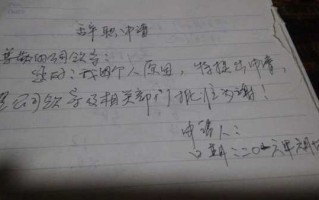 辞职申请
尊敬的公司领导：
您好：我因个人原因，特提出申请，
望公司领导及相关部门批准为谢！
申请人：
日期：二0一六年六月